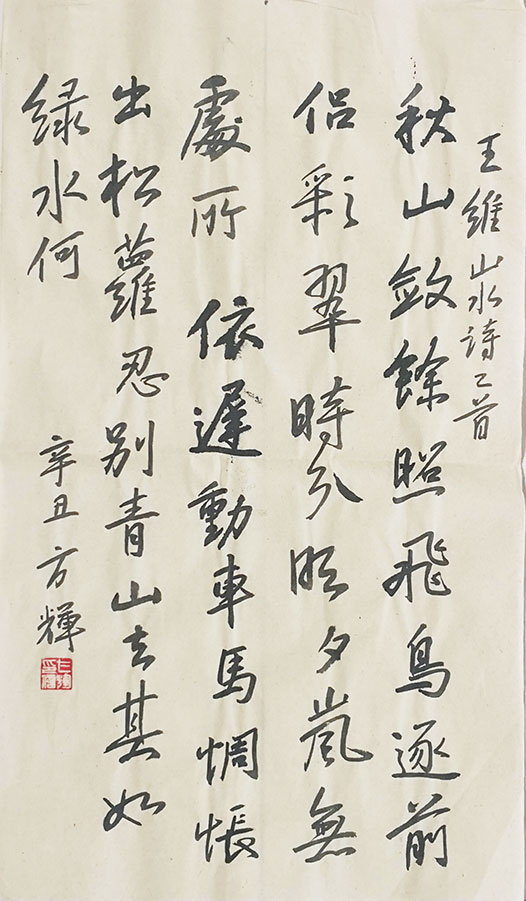 王維山水詩二首
秋山斂餘照飛鳥逐前
侣彩翠時分明夕嵐無
處所 依遲動車馬惆悵
出松蘿忍別青山去其如
緑水何
辛丑方輝